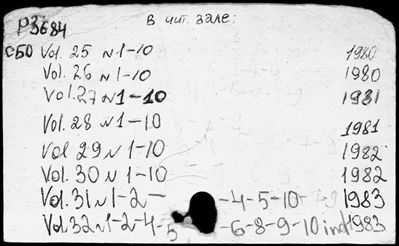 в чит. зале:
P3684
СБО Vol. 25 N 1-10 1980
Vol. 26 N 1-10 1980
Vol. 27 N 1-10 1981
Vol. 28 N 1-10 1981
Vol 29 N 1-10 1982
Vol. 30 N 1-10 1982
Vol. 31 N 1-2- -4-5-10- 1983
Vol. 32 N 1-2-4-5 -6-8-9-10 ind 1983